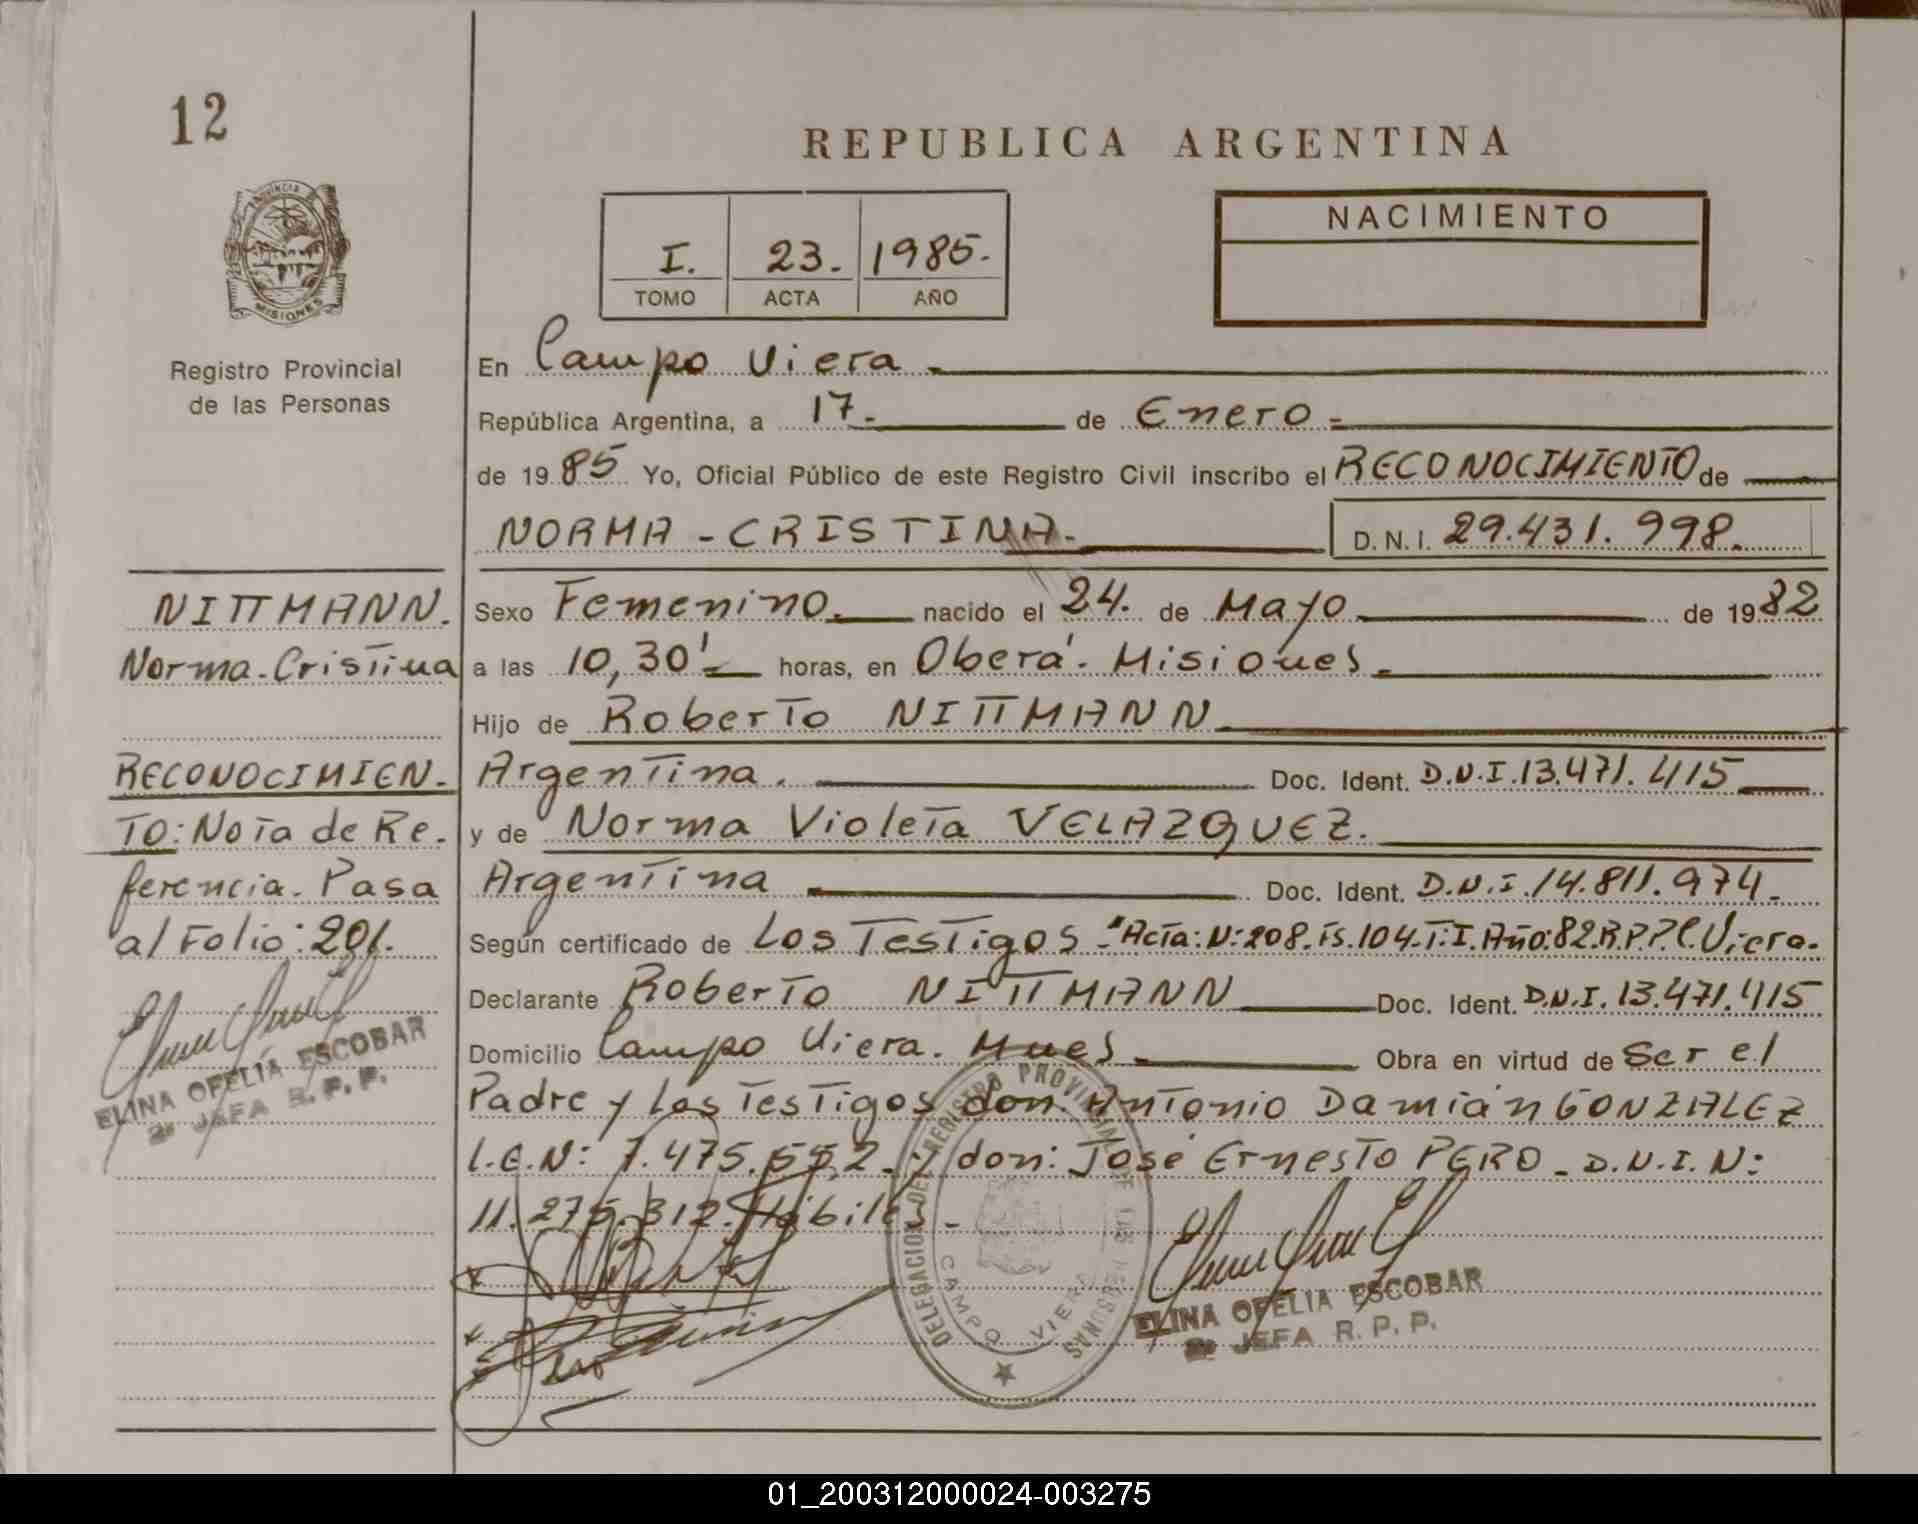 12
REPUBLICA ARGENTINA
PROVINCIA
MISIONES
I. 23. 1985.
TOMO ACTA AÑO
NACIMIENTO
Registro Provincial
de las Personas
En Campo Viera.
República Argentina, a 17. de Enero.
de 1985 Yo, Oficial Público de este Registro Civil inscribo el RECONOCIMIENTO de
NORMA - CRISTINA. D.N.I. 29.431.998.
NITTMANN.
Norma-Cristina
RECONOCIMIEN-
TO: Nota de Re-
ferencia. Pasa
al Folio: 201.
ELINA OFELIA ESCOBAR
JEFA R.P.P.
Sexo Femenino. nacido el 24. de Mayo de 1982
a las 10,30' horas, en Oberá. Misiones.
Hijo de Roberto NITTMANN.
Argentina. Doc. Ident. D.N.I. 13.471.415
y de Norma Violeta VELAZQUEZ.
Argentina Doc. Ident. D.N.I. 14.811.974.
Según certificado de Los Testigos. Acta: N: 208. Fs. 104. T: I. Año: 82. R.P.P. C. Viera.
Declarante Roberto NITTMANN Doc. Ident. D.N.I. 13.471.415
Domicilio Campo Viera. Mnes. Obra en virtud de Ser el
Padre y Los Testigos don: Antonio Damián GONZALEZ
L.E.N: 7.475.552. y don: José Ernesto PERO. D.N.I. N:
11.275.312. Hábiles.
DELEGACION DEL REGISTRO PROVINCIAL DE LAS PERSONAS
CAMPO VIERA
ELINA OFELIA ESCOBAR
JEFA R.P.P.
01_200312000024-003275